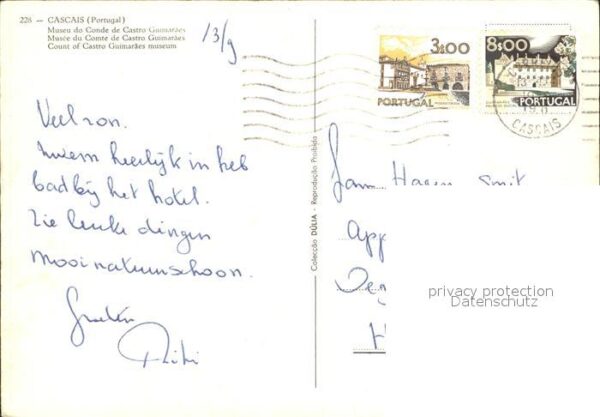 226 - CASCAIS (Portugal)
Museu do Conde de Castro Guimarães
Musée du Comte de Castro Guimarães
Count of Castro Guimarães museum
13/9
3$00
PORTUGAL
8$00
PORTUGAL
CASCAIS
Veel zon.
zwem heerlijk in het
bad bij het hotel.
Zie leuke dingen
Mooi natuurschoon.
Groeten
Colecção DÚLIA - Reprodução Proibida
Hagen Smit
App
privacy protection
Datenschutz